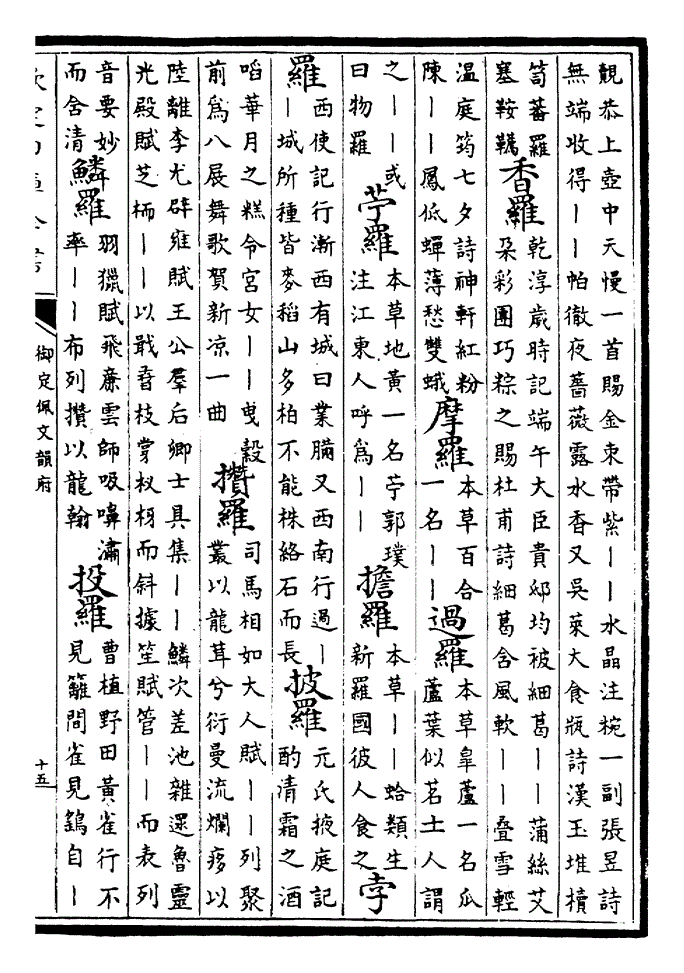 靚恭上壺中天慢一首賜金束帶紫丨丨水晶注椀一副張昱詩
無端收得丨丨帕徹夜薔薇露水香又吳萊大食瓶詩漢玉堆櫝
笥蕃羅
塞鞍韉
香羅
乾淳歲時記端午大臣貴邸均被細葛丨丨蒲絲艾
朶彩團巧粽之賜杜甫詩細葛含風軟丨丨疊雪輕
溫庭筠七夕詩神軒紅粉
陳丨丨鳳低蟬薄愁雙蛾
摩羅
本草百合
一名丨丨
過羅
本草臯蘆一名瓜
蘆葉似茗土人謂
之丨丨丨或
曰物羅
苄羅
本草地黃一名苄郭璞
注江東人呼爲丨丨
擔羅
本草丨丨蛤類生
新羅國彼人食之
孛
羅
西使記行漸西有城曰業瞞又西南行過丨
丨城所種皆麥稻山多柏不能株絡石而長
披羅
元氏掖庭記
酌清霜之酒
㗖華月之糕令宮女丨丨曳縠
前爲八展舞歌賀新凉一曲
攢羅
司馬相如大人賦丨丨列聚
叢以龍茸兮衍曼流爛痑以
陸離李尤辟雍賦王公羣后卿士具集丨丨鱗次差池雜遝魯靈
光殿賦芝栭丨丨以戢孴枝掌杈枒而斜據笙賦管丨丨而表列
音要妙
而含清
鱗羅
羽獵賦飛廉雲師吸嚊潚
率丨丨布列攢以龍翰
投羅
曹植野田黃雀行不
見籬間雀見鷂自丨
欽定四庫全書
御定佩文韻府
十五